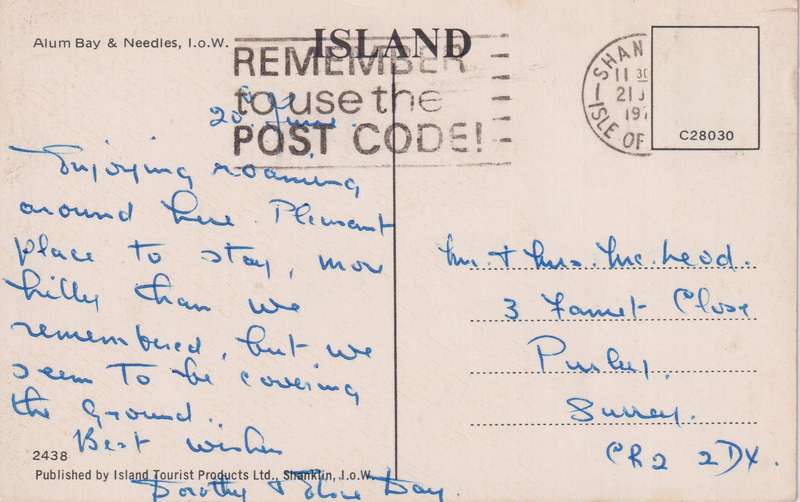 Alum Bay & Needles, I.o.W.
ISLAND
REMEMBER
to use the
POST CODE!
SHAN
11 30
21 J
197
ISLE OF
C28030
20 June.
Enjoying roaming
around here. Pleasant
place to stay, more
hilly than we
remembered, but we
seem to be covering
the ground..
Best wishes
Dorothy & Day.
Mr. & Mrs. McLeod.
3 Famet Close
Purley,
Surrey.
CR2 2DX.
2438
Published by Island Tourist Products Ltd., Shanklin, I.o.W.